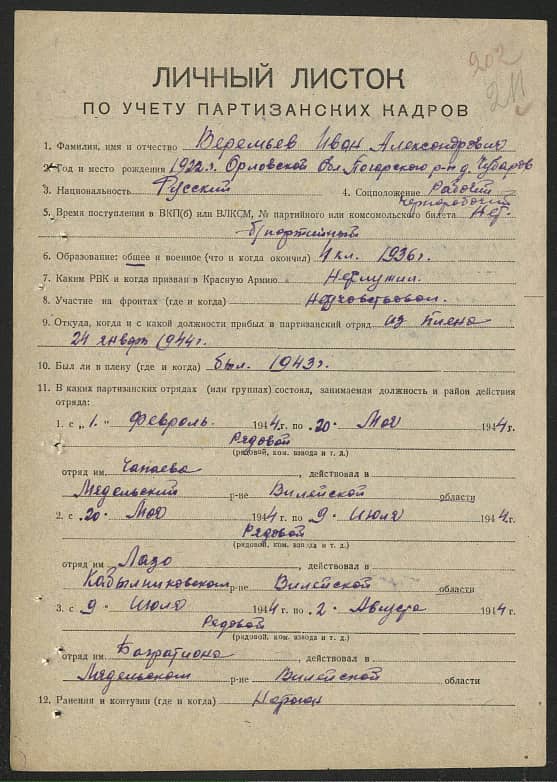 202
211
ЛИЧНЫЙ ЛИСТОК
ПО УЧЕТУ ПАРТИЗАНСКИХ КАДРОВ
1. Фамилия, имя и отчество Веремьев Иван Александрович
2. Год и место рождения 1922 г. Орловской обл. Погарского р-н д. Чубаров
3. Национальность Русский 4. Соцположение Рабочий
чернорабочий
5. Время поступления в ВКП(б) или ВЛКСМ, № партийного или комсомольского билета Нет.
б/партийный
6. Образование: общее и военное (что и когда окончил) 4 кл. 1936 г.
7. Каким РВК и когда призван в Красную Армию Неслужил.
8. Участие на фронтах (где и когда) Неучовствовал.
9. Откуда, когда и с какой должности прибыл в партизанский отряд из плена
24 январь 1944 г.
10. Был ли в плену (где и когда) был. 1943 г.
11. В каких партизанских отрядах (или группах) состоял, занимаемая должность и район действия
отряда:
1. с „1. " Февроль 1944 г. по „20. Мая 1944 г.
Рядовой
(рядовой, ком. взвода и т. д.)
отряд им. Чапаева, действовал в
Мядельский р-не Вилейской области
2. с „20. Мая 1944 г. по „9. Июля 1944 г.
Рядовой
(рядовой, ком. взвода и т. д.)
отряд им. Лазо, действовал в
Кобыльниковском р-не Вилейской области
3. с „9 Июля 1944 г. по „2. Августа 1944 г.
Рядовой
(рядовой, ком. взвода и т. д.)
отряд им. Багратиона, действовал в
Мядельском р-не Вилейской области
12. Ранения и контузии (где и когда)